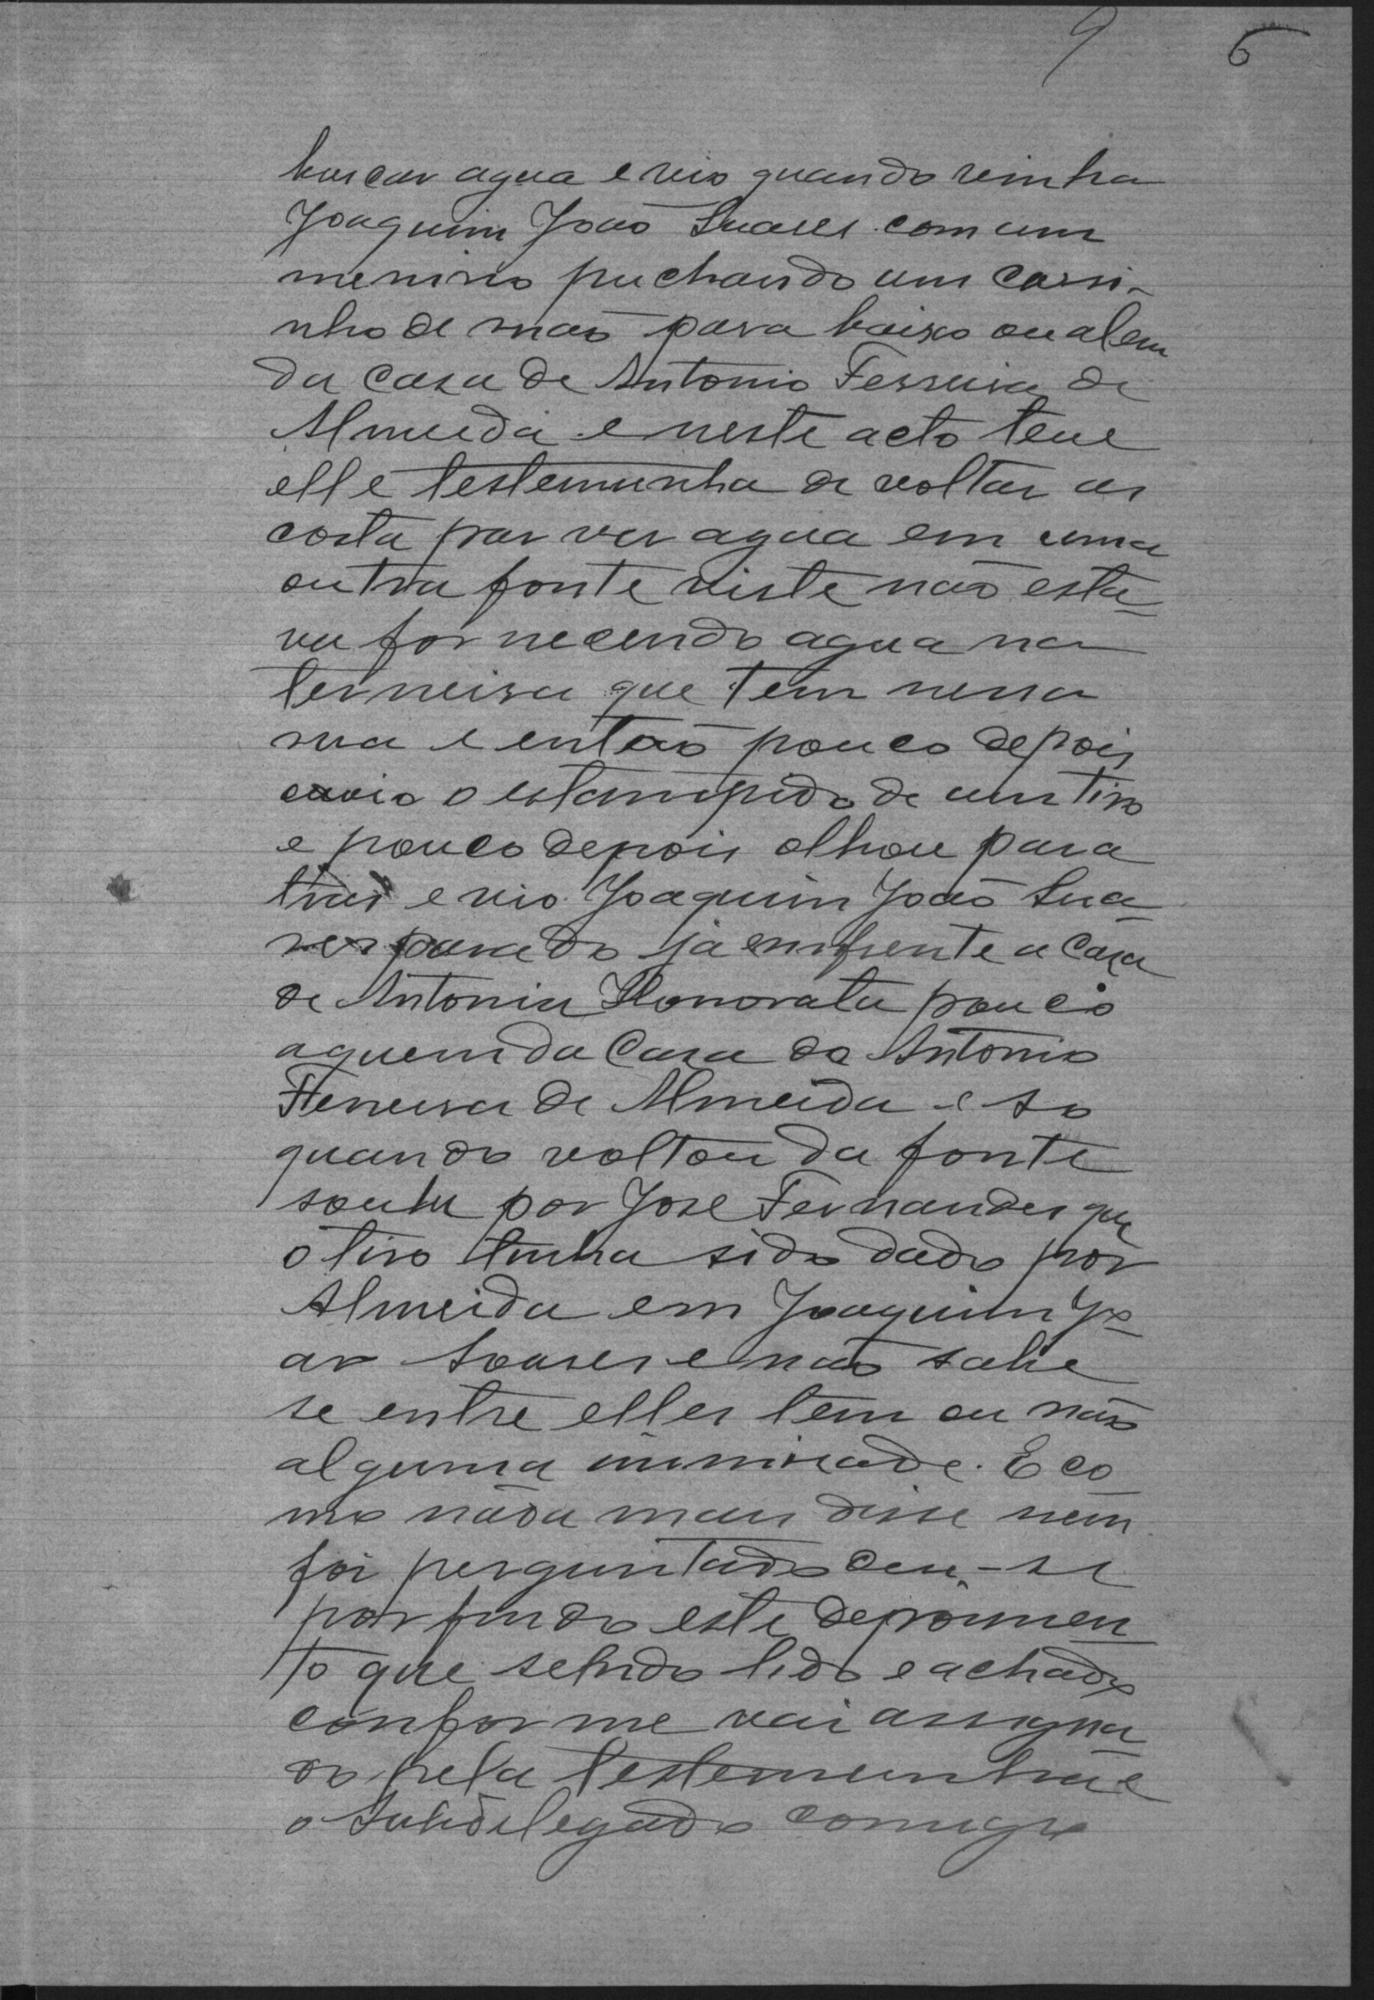 9 6
buscar agua e vio quando vinha
Joaquim João Suares com um
menino puchando um carri-
nho de mão para baixo ou alem
da casa de Antonio Ferreira de
Almeida e neste acto teve
elle testemunha de voltar as
costa par ver agua em uma
outra fonte viste não esta-
va fornecendo agua na
terneira que tem nessa
rua e então pouco depois
ouvio o estampido de um tiro
e pouco depois olhou para
traz e vio Joaquim João Sua-
res parado já emfrente a casa
de Antonia Honorata pouco
aquem da Casa de Antonio
Ferreira de Almeida e so
quando voltou da fonte
soube por José Fernandes que
o tiro tinha sido dado por
Almeida em Joaquim Jo-
ao Soares e não sabe
se entre elles tem ou não
alguma inimisade. E co
mo nada mais disse nem
foi perguntado deu-se
por findo este depoimen
to que sendo lido e achado
conforme vai assigna
do pela testemunha e
o Subdelegado comigo